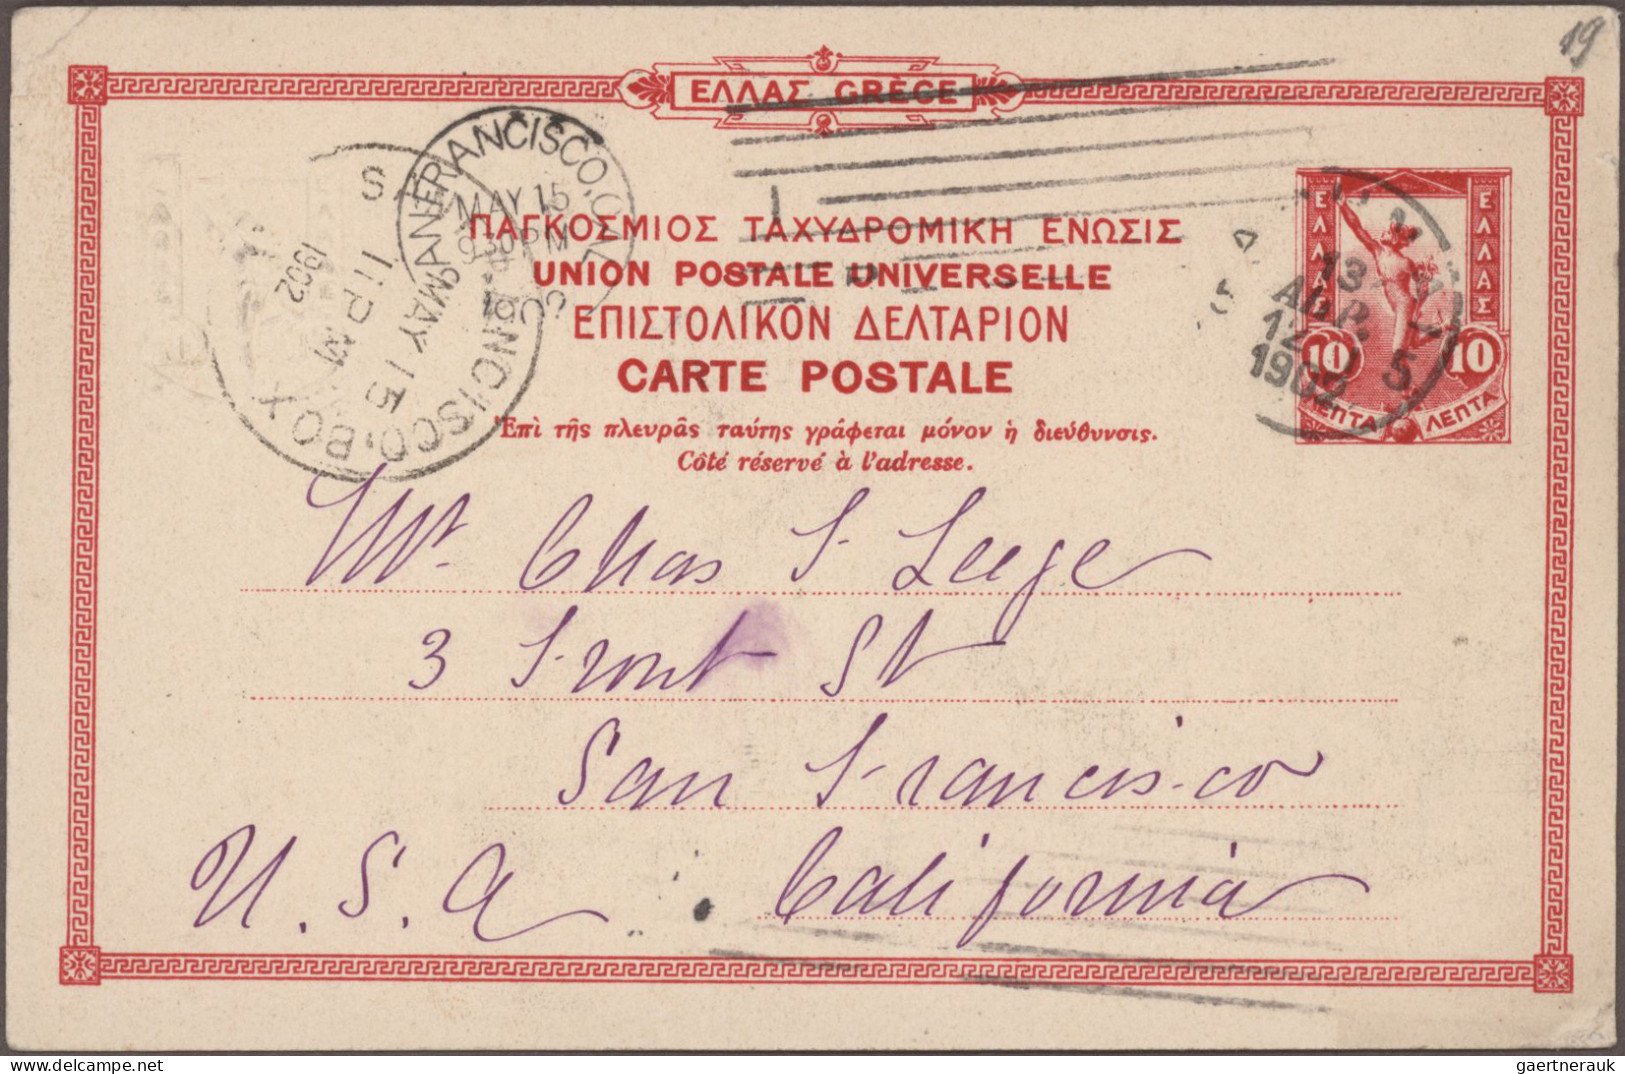 19
ΕΛΛΑΣ GRÈCE
SAN FRANCISCO, CAL.
MAY 15
9 30 PM
1902
S
BOX
MAY 15
11 PM
1902
ΠΑΓΚΟΣΜΙΟΣ ΤΑΧΥΔΡΟΜΙΚΗ ΕΝΩΣΙΣ
UNION POSTALE UNIVERSELLE
ΕΠΙΣΤΟΛΙΚΟΝ ΔΕΛΤΑΡΙΟΝ
CARTE POSTALE
Ἐπὶ τῆς πλευρᾶς ταύτης γράφεται μόνον ἡ διεύθυνσις.
Côté réservé à l'adresse.
ΕΛΛΑΣ
ΕΛΛΑΣ
10 10
ΛΕΠΤΑ ΛΕΠΤΑ
13
ΑΠΡ.
12
1902
5
Mr. Chas S. Leege
3 Front St
San Francisco
U.S.A. California
gaertnerauk